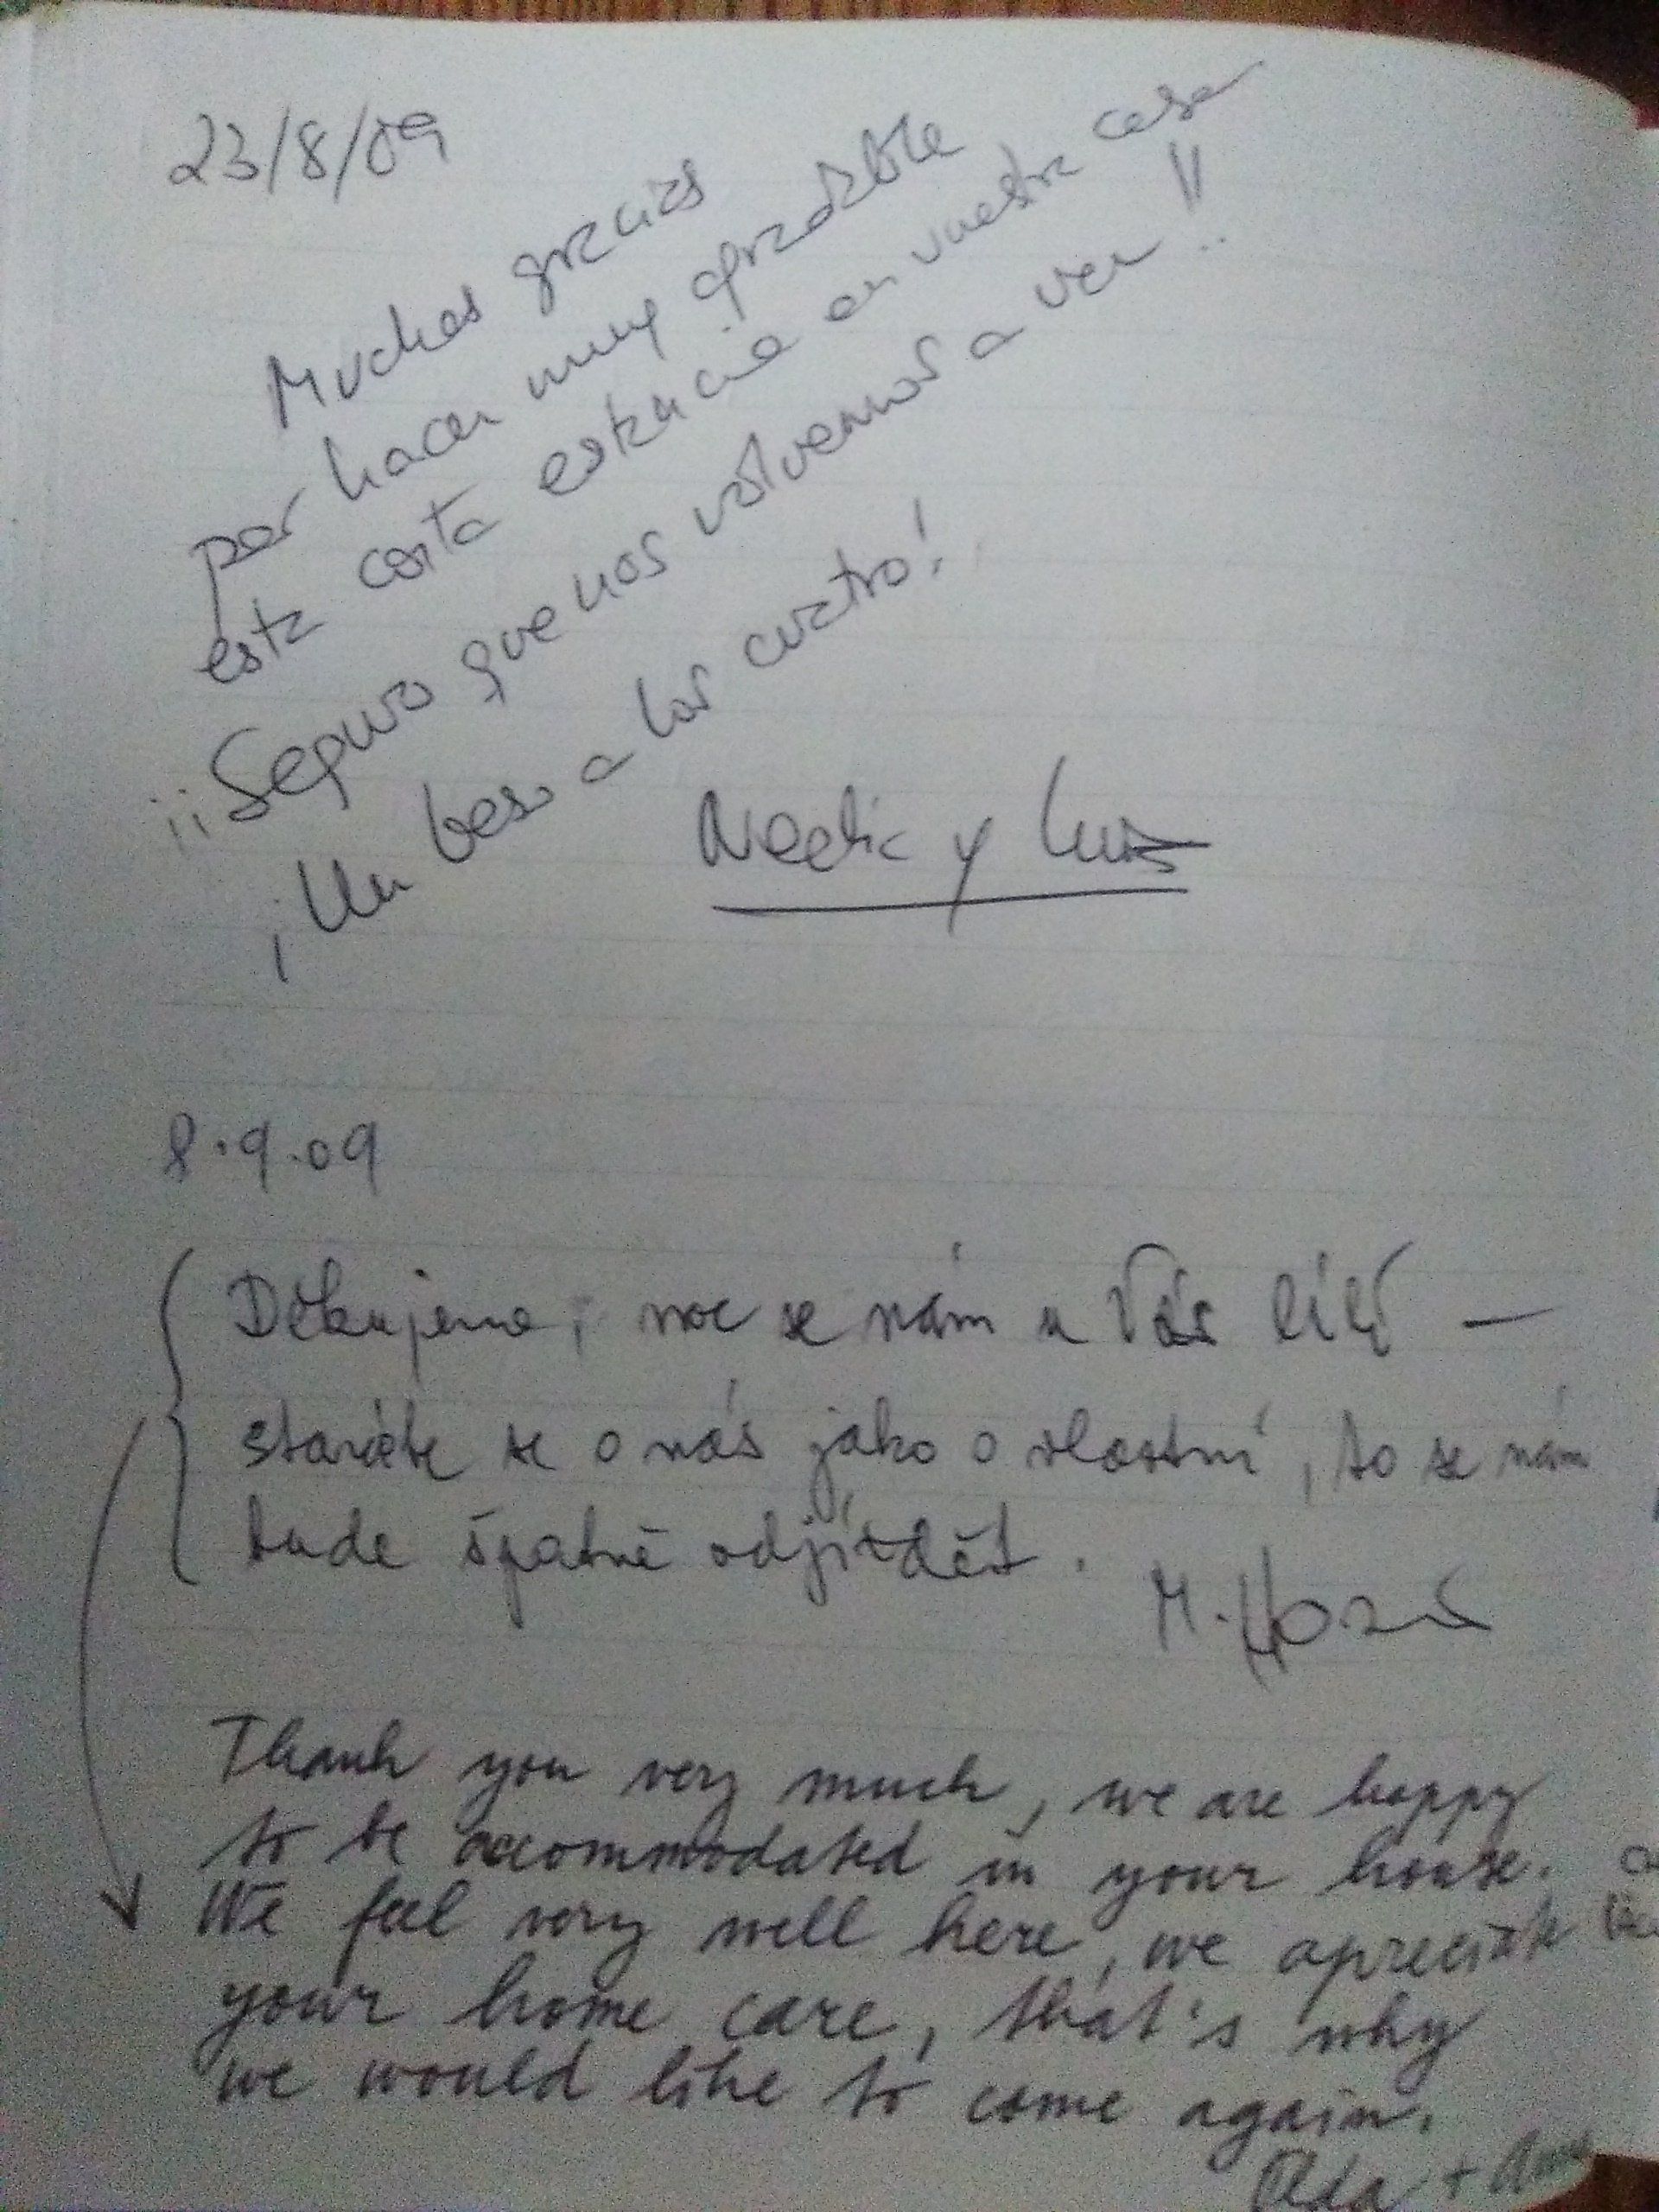 23/8/09
Muchas gracias
por hacer muy agradable
esta corta estancia en vuestra casa
¡¡Seguro que nos volvemos a ver!!
¡Un beso a los cuatro!
y Luis
8.9.09
Děkujeme, moc se nám u Vás líbí —
staráte se o nás jako o vlastní, to se nám
bude špatně odjíždět.
M.
Thank you very much, we are happy
to be accommodated in your house.
We feel very well here, we apreciate
your home care, that's why
we would like to come again.
+